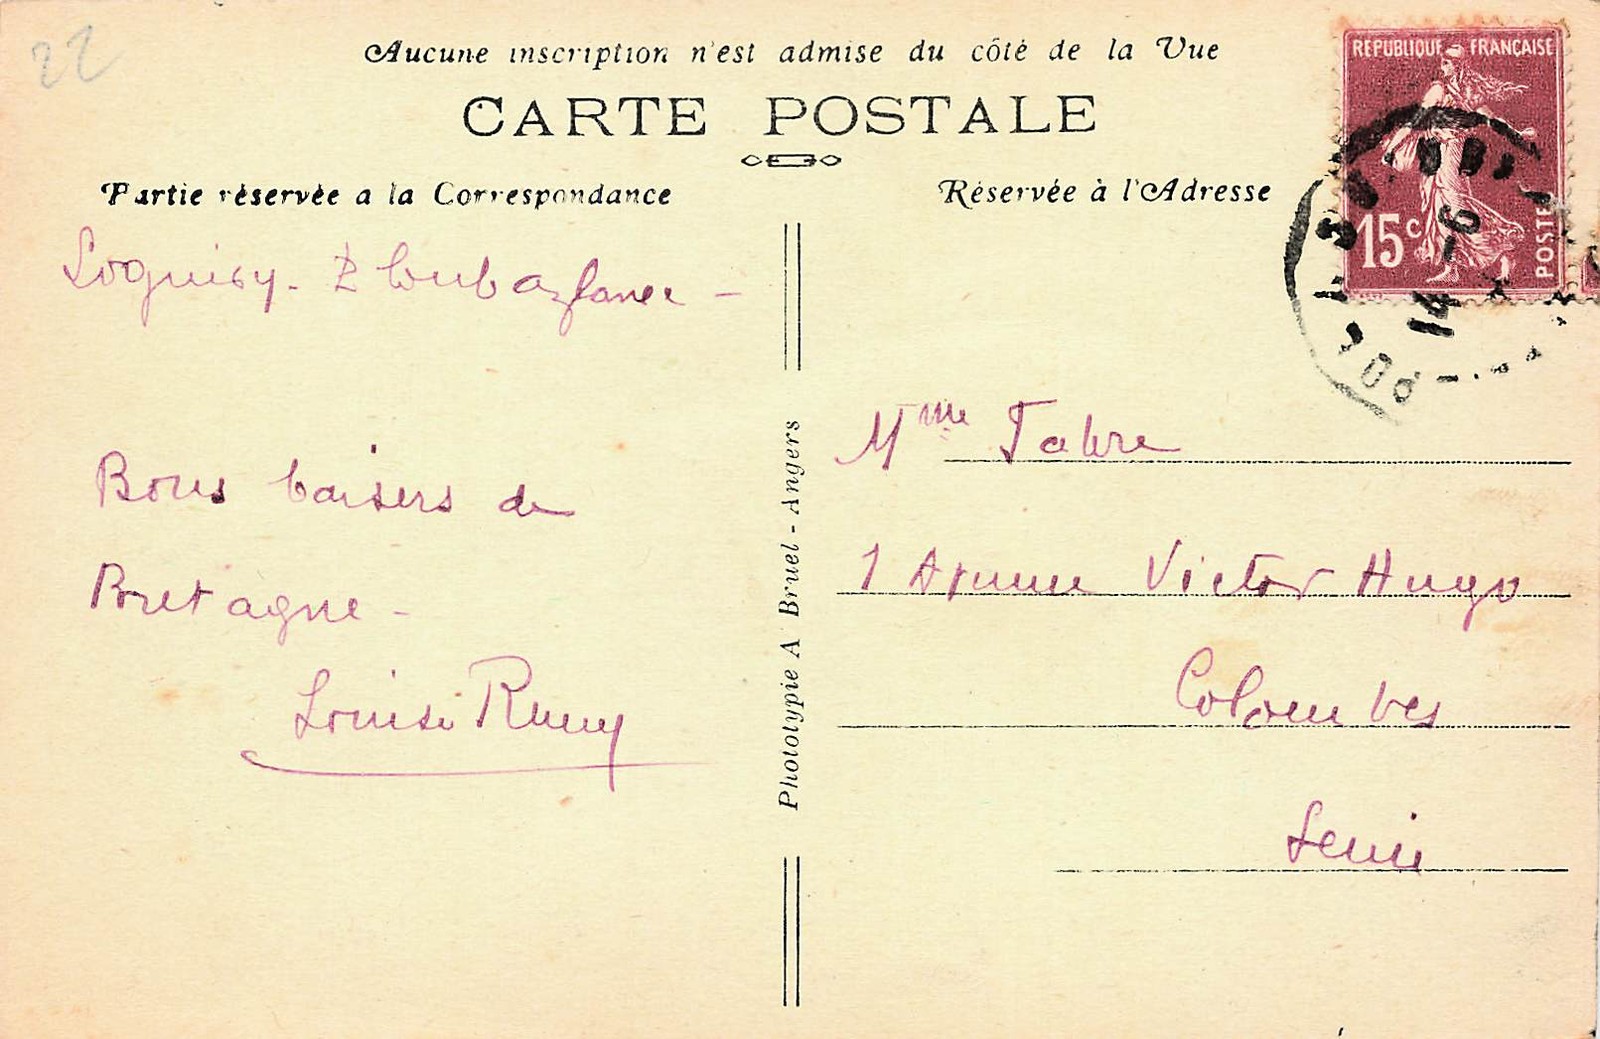 22
Aucune inscription n'est admise du côté de la Vue
CARTE POSTALE
Partie réservée a la Correspondance
Réservée à l'Adresse
REPUBLIQUE FRANÇAISE
15c
POSTES
14-6
Loguivy - Ploubazlanec -
Bons baisers de
Bretagne -
Louise Remy
Phototypie A Bruel - Angers
Mme Fabre
1 Avenue Victor Hugo
Colombes
Seine